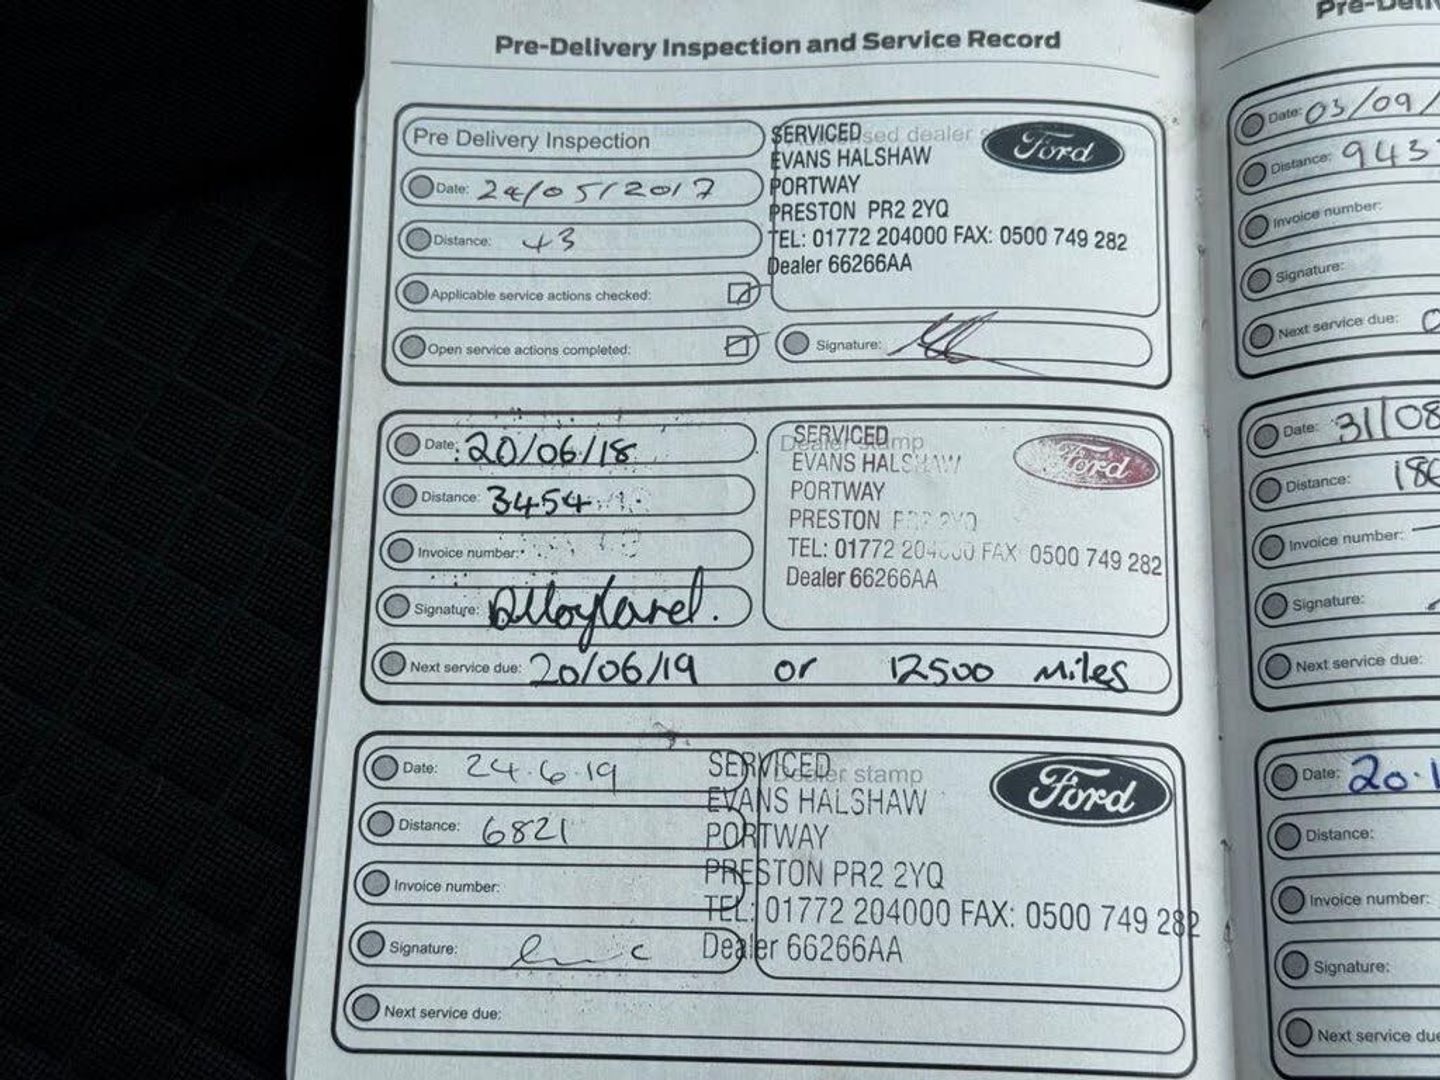 Pre-Delivery Inspection and Service Record
Pre Delivery Inspection
Date: 24/05/2017
Distance: 43
Applicable service actions checked:
Open service actions completed:
SERVICED
EVANS HALSHAW
PORTWAY
PRESTON PR2 2YQ
TEL: 01772 204000 FAX: 0500 749 282
Dealer 66266AA
Ford
Signature:
Date: 20/06/18
Distance: 3454
Invoice number:
Signature:
Dealer stamp
SERVICED
EVANS HALSHAW
PORTWAY
PRESTON PR2 2YQ
TEL: 01772 204000 FAX 0500 749 282
Dealer 66266AA
Ford
Next service due: 20/06/19 or 12500 miles
Date: 24.6.19
Distance: 6821
Invoice number:
Signature:
Dealer stamp
SERVICED
EVANS HALSHAW
PORTWAY
PRESTON PR2 2YQ
TEL: 01772 204000 FAX: 0500 749 282
Dealer 66266AA
Ford
Next service due:
Date: 03/09/
Distance: 943
Invoice number:
Signature:
Next service due:
Date: 31/08
Distance: 18
Invoice number:
Signature:
Next service due:
Date: 20.1
Distance:
Invoice number:
Signature:
Next service due